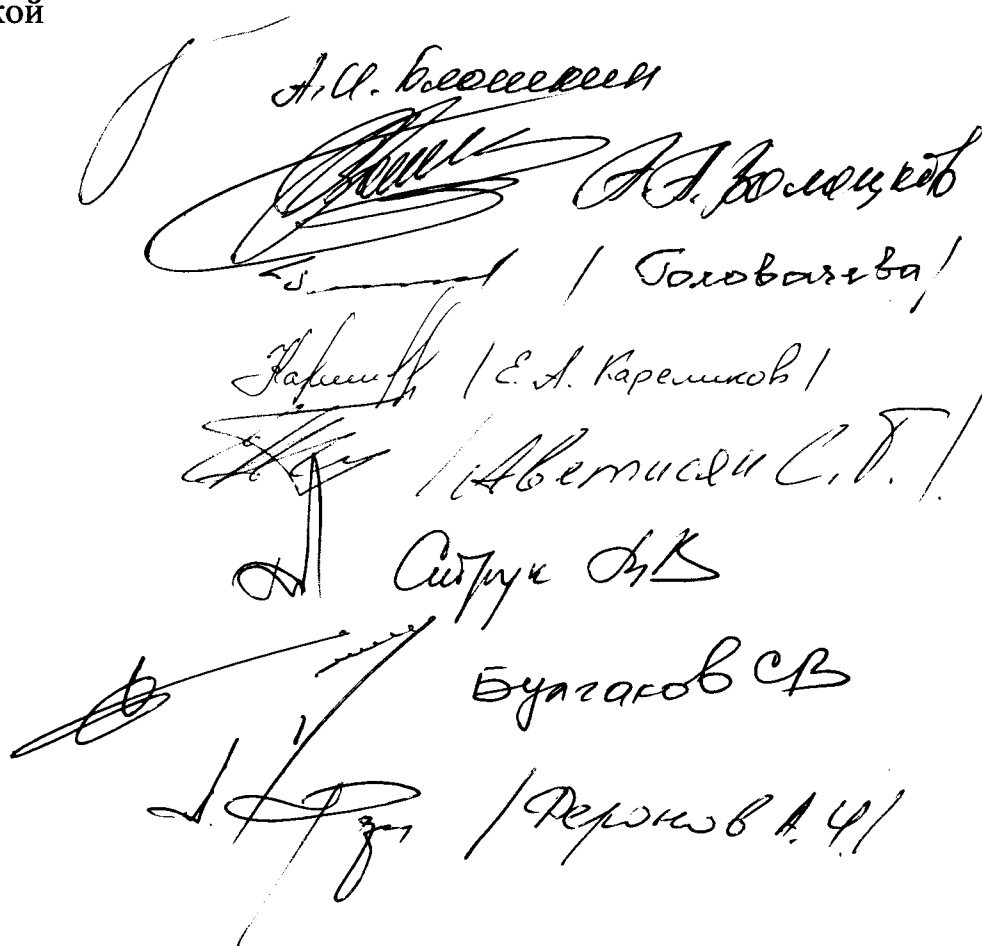 кой
А.И. Блошкин
А.А. Волоцков
/ Головачева /
/ Е.А. Карешиков /
/ Аветисян С.Г. /
Ситрук АВ
Булгаков СВ
/ Феронов А.И /